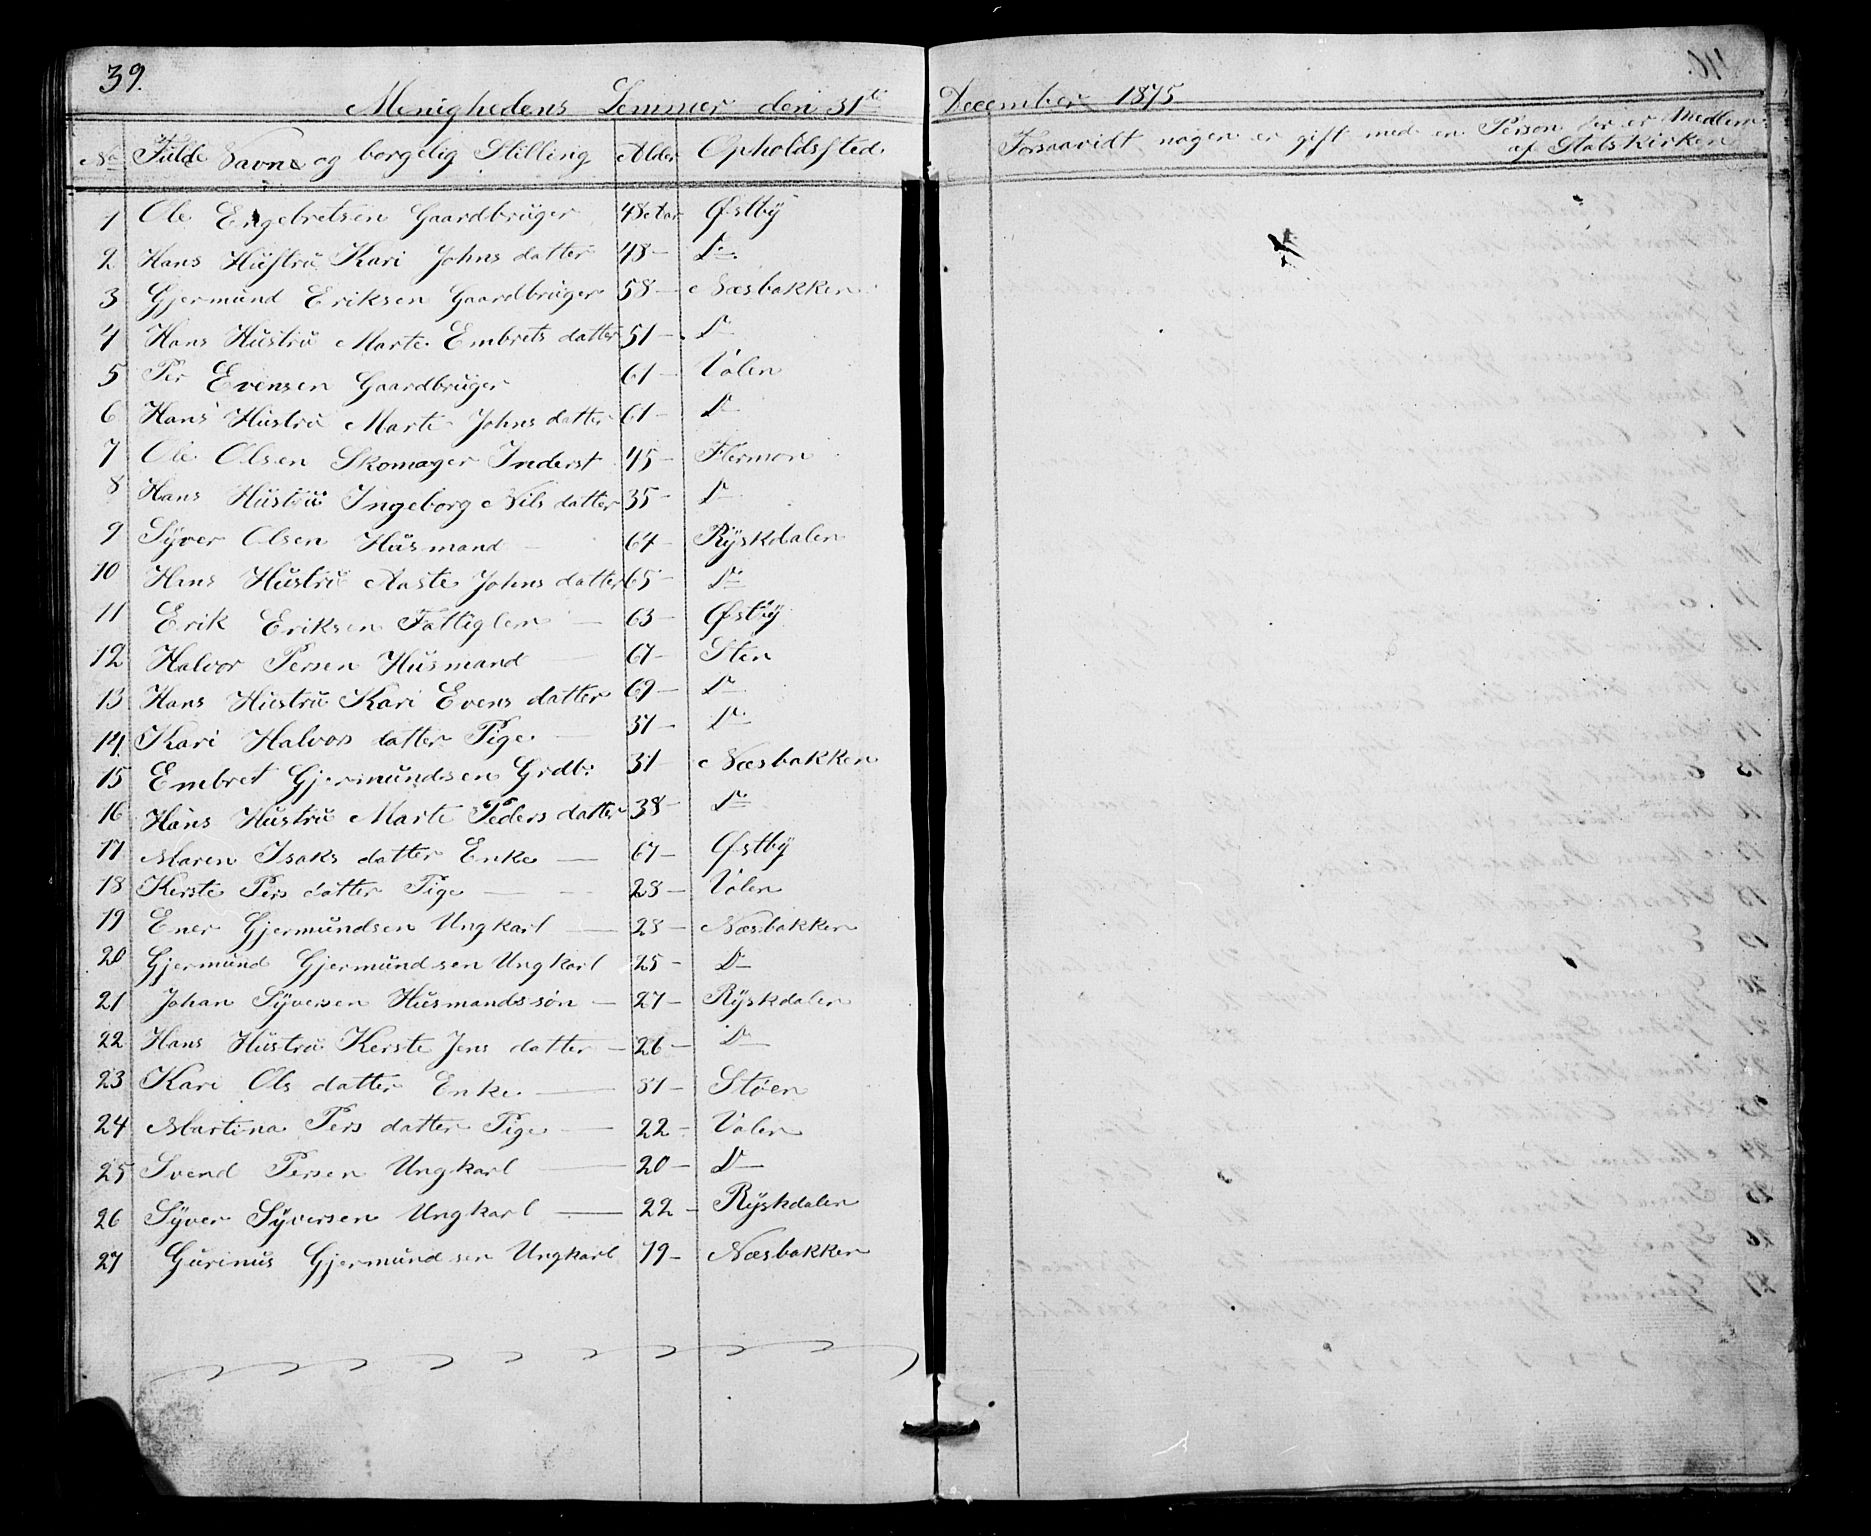 39.
40.
Menighedens Lemmer den 31te December 1875
No Fulde Navne og borgelig Stilling Alder Opholdssted. Forsaavidt nogen er gift med en Person der er Medlem
af Statskirken
1 Ole Engebretsen Gaardbruger 48 Aar Østby
2 Hans Hustru Kari Johns datter 48 – Do
3 Gjermund Eriksen Gaardbruger 58 – Næsbakken
4 Hans Hustru Marte Embrets datter 51 – Do
5 Per Evensen Gaardbruger 61 – Volen
6 Hans Hustru Marte Johns datter 61 – Do
7 Ole Olsen Skomager Inderst 45 – Flermon
8 Hans Hustru Ingeborg Nils datter 35 – Do
9 Syver Olsen Husmand – 64 – Ryskdalen
10 Hans Hustru Aaste Johns datter 65 – Do
11 Erik Eriksen Fattiglem – 63 – Østby
12 Halvor Persen Husmand – 67 – Sten
13 Hans Hustru Kari Evens datter 69 – Do
14 Kari Halvors datter Pige – 31 – Do
15 Embret Gjermundsen Grdbr 31 – Næsbakken
16 Hans Hustru Marte Peders datter 38 – Do
17 Maren Isaks datter Enke – 67 – Østby
18 Kerste Pers datter Pige – 28 – Volen
19 Ener Gjermundsen Ungkarl – 28 – Næsbakken
20 Gjermund Gjermundsen Ungkarl 25 – Do
21 Johan Syversen Husmandssøn – 27 – Ryskdalen
22 Hans Hustru Kerste Jens datter – 26 – Do
23 Kari Ols datter Enke – 81 – Støen
24 Martina Pers datter Pige – 22 – Volen
25 Svend Persen Ungkarl – 20 – Do
26 Syver Syversen Ungkarl – 22 – Ryskdalen
27 Gurinus Gjermundsen Ungkarl 19 – Næsbakken